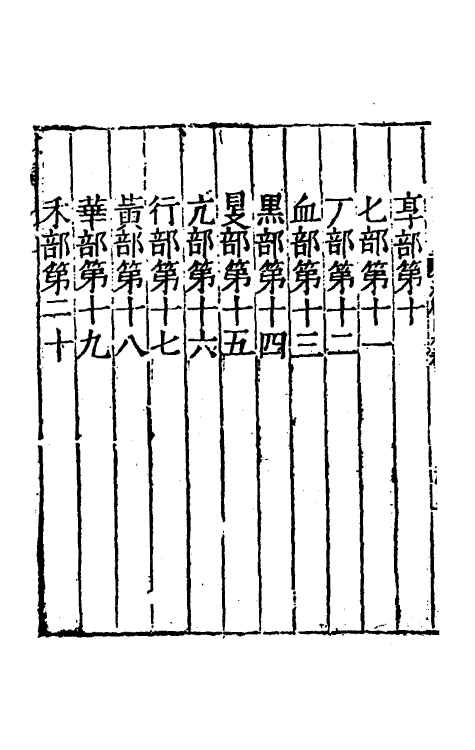 享部第十
七部第十一
丁部第十二
血部第十三
黒部第十四
㚅部第十五
亢部第十六
行部第十七
黃部第十八
華部第十九
禾部第二十